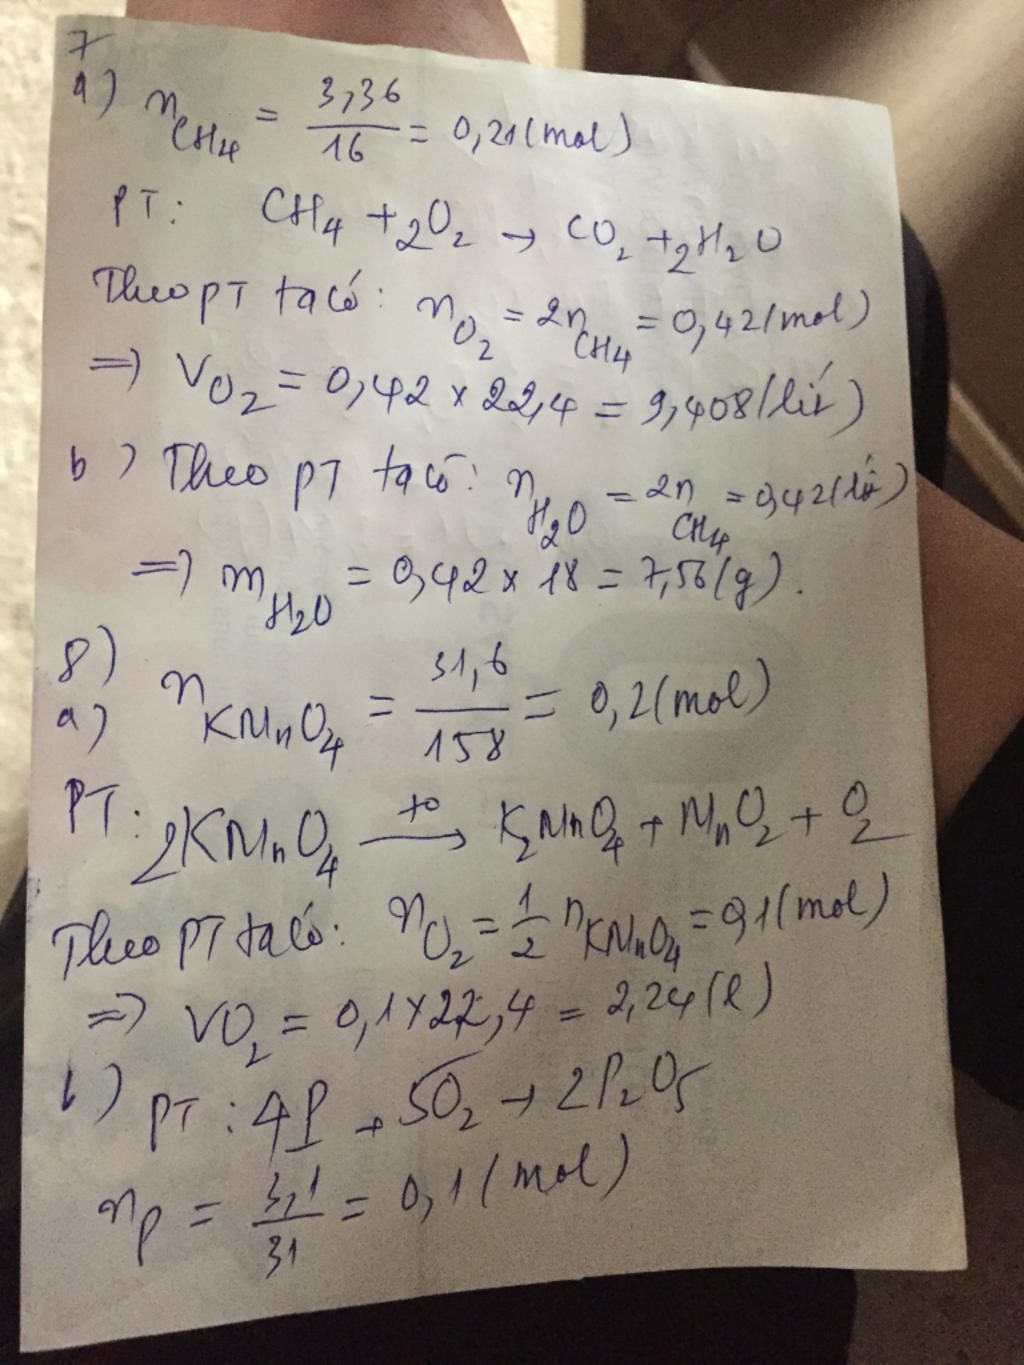 7
a) nCH₄ = 3,36/16 = 0,21(mol)
PT: CH₄ + 2O₂ → CO₂ + 2H₂O
Theo PT ta có: nO₂ = 2nCH₄ = 0,42(mol)
=> VO₂ = 0,42 x 22,4 = 9,408(lít)
b) Theo PT ta có: nH₂O = 2nCH₄ = 0,42(lít)
=> mH₂O = 0,42 x 18 = 7,56(g).
8)
a) nKMnO₄ = 31,6/158 = 0,2(mol)
PT: 2KMnO₄ →(t°) K₂MnO₄ + MnO₂ + O₂
Theo PT ta có: nO₂ = 1/2 nKMnO₄ = 0,1(mol)
=> VO₂ = 0,1 x 22,4 = 2,24(l)
b) PT: 4P + 5O₂ → 2P₂O₅
nP = 3,1/31 = 0,1(mol)